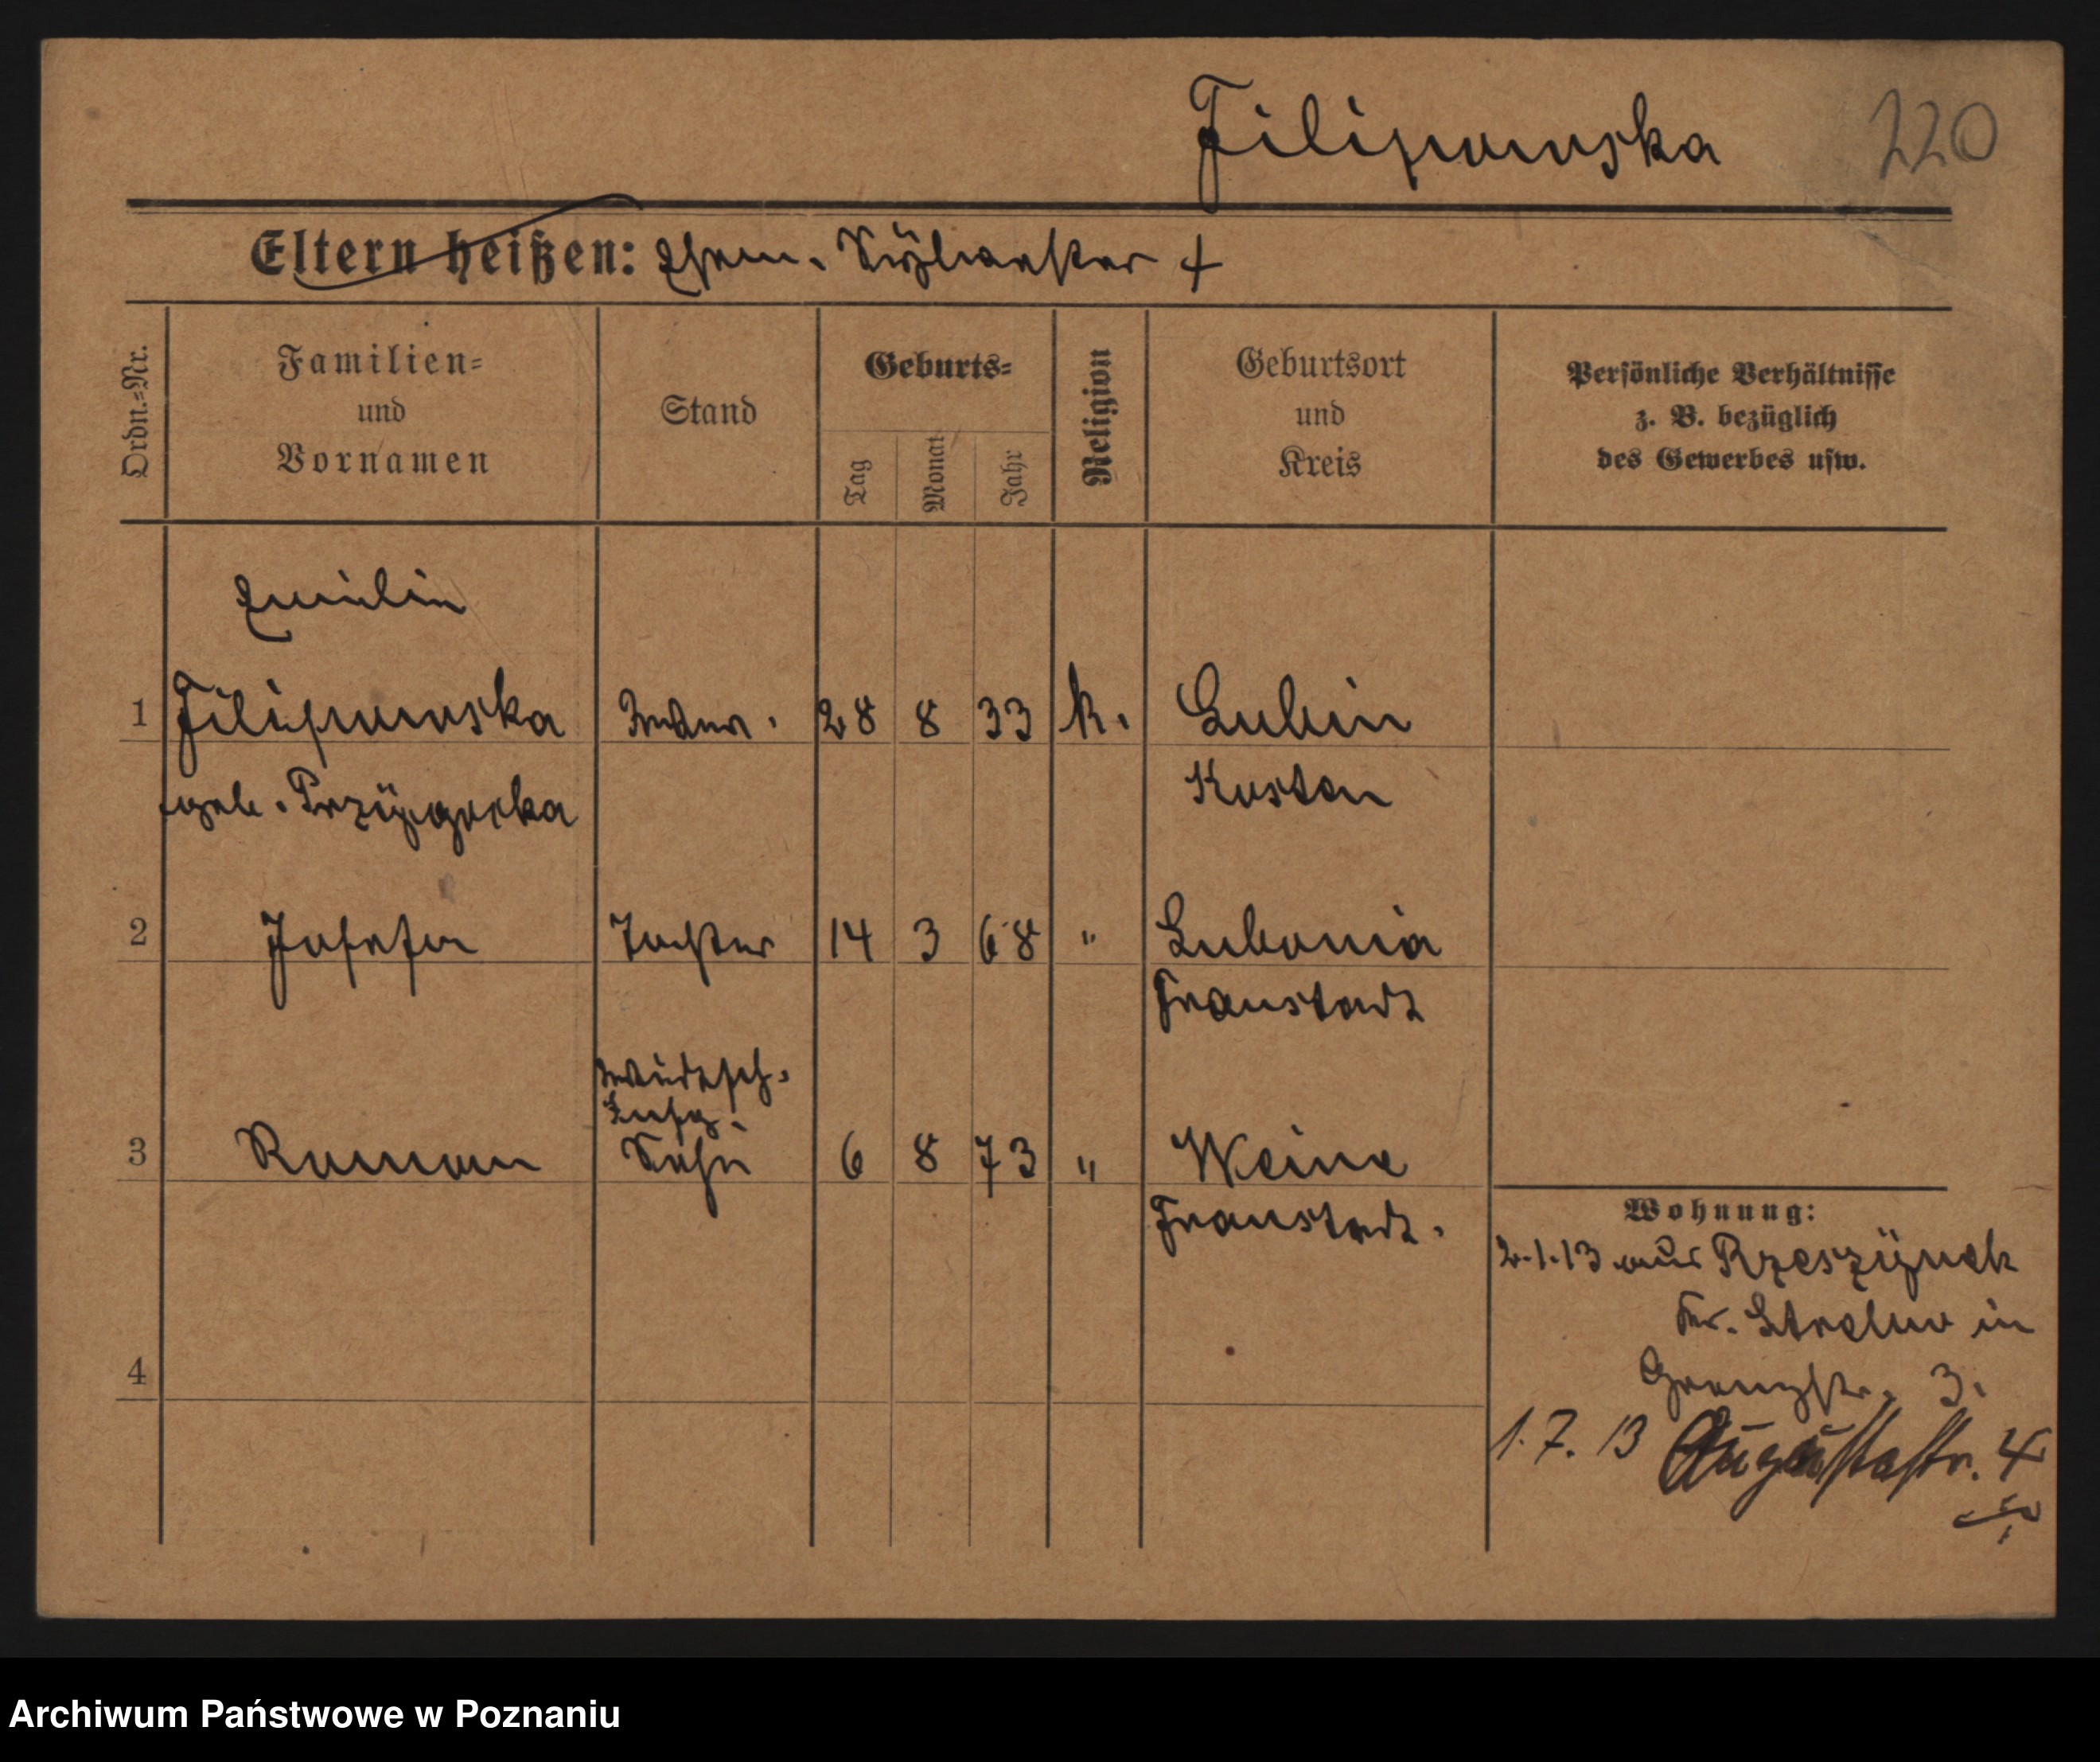 Filipowska 220
Eltern heißen: Ehem. Sÿlvester +
Ordn.=Nr.
Familien=
und
Vornamen
Stand
Geburts=
Tag
Monat
Jahr
Religion
Geburtsort
und
Kreis
Persönliche Verhältnisse
z. B. bezüglich
des Gewerbes usw.
Emilie
1 Filipowska Witwe. 28 8 33 k. Lubin
geb. Przÿgocka Kosten
2 Josefa Tochter 14 3 68 " Lubonia
Fraustadt
Wirtsch.
Insp.
3 Roman Sohn 6 8 73 " Weine
Fraustadt.
4
Wohnung:
2.1.13 aus Rzeszÿnek
Kr. Strelno in
Grenzstr. 3.
1.7.13 Augustastr. 4
Archiwum Państwowe w Poznaniu